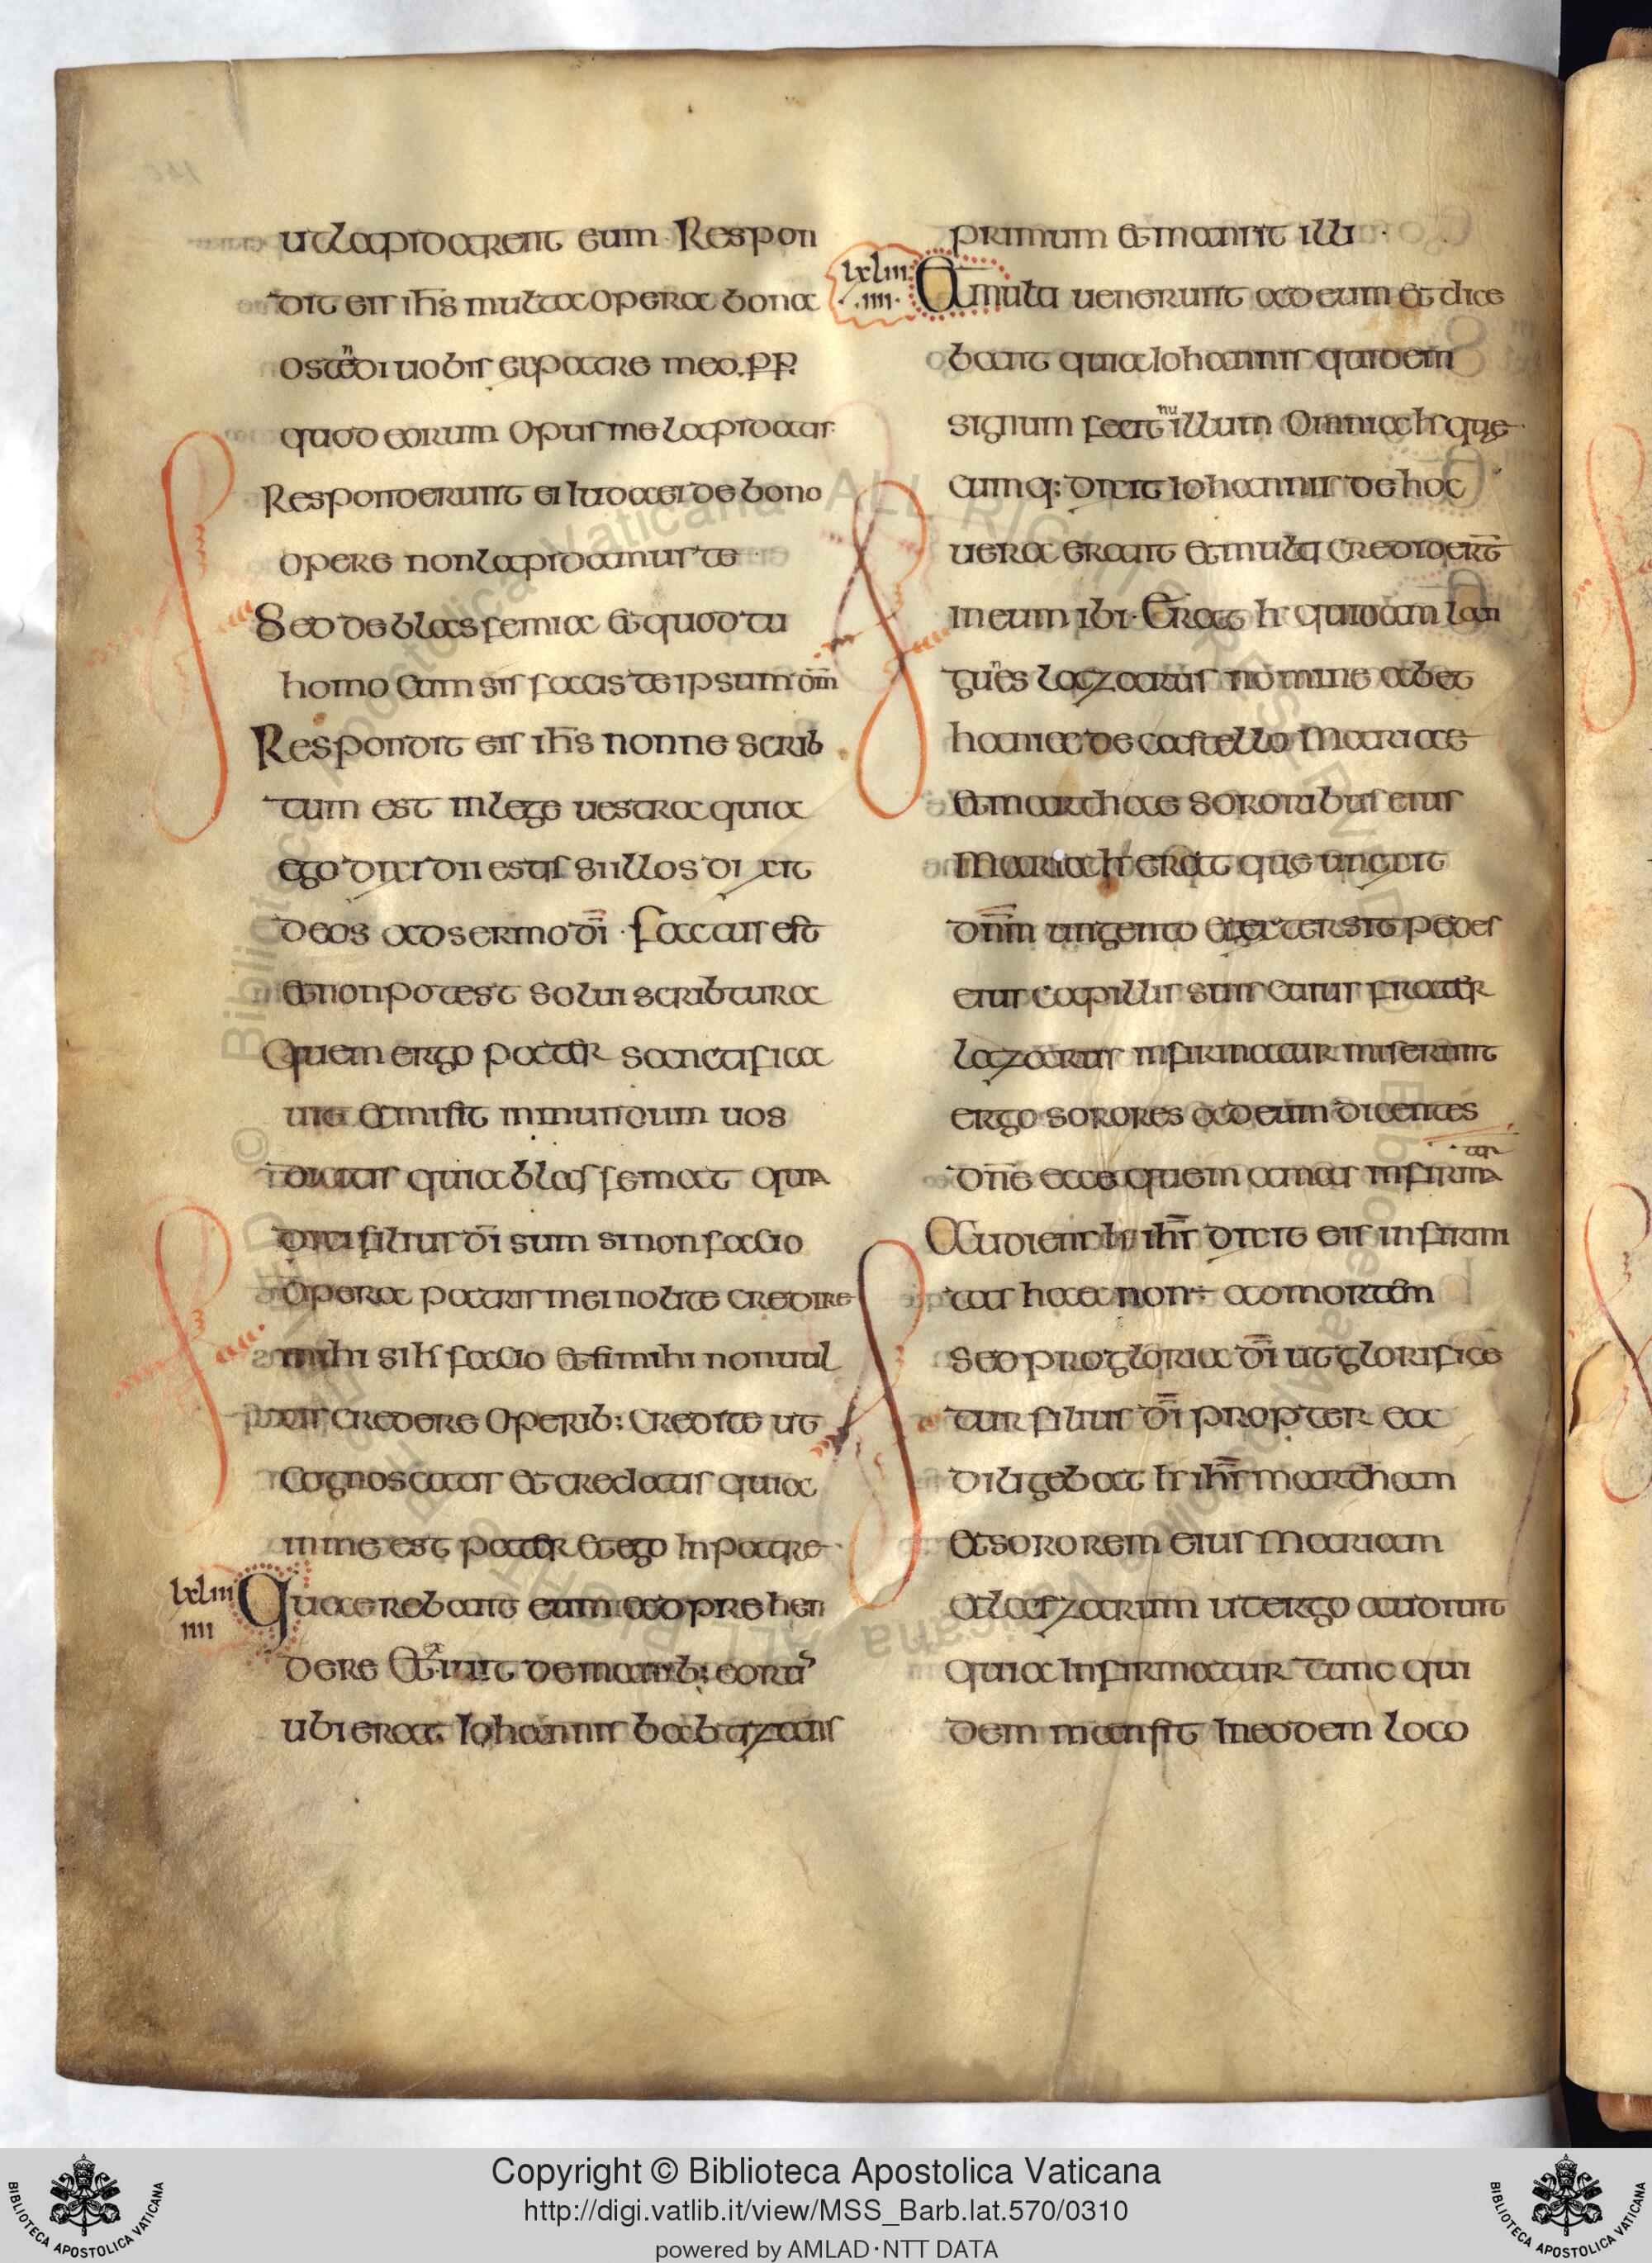 utlapidarent eum Respon
dit eis ihs̄ multa opera bona
ostendi uobis ex patre meo. pp̄.
quod eorum opus me lapidatis
Responderunt ei iudaei de bono
opere non lapidamus te
Sed de blasfemia et quod tu
homo cum sis facis te ipsum dm̄
Respondit eis ihs̄ nonne scrib
tum est in lege uestra quia
ego dixi dii estis si illos dixit
deos ad sermo dī factus est
et non potest solui scribtura
Quem ergo pater sanctifica
uit et misit in mundum uos
dicitis quia blasfemat quia
dixi filius dī sum si non facio
opera patris mei nolite credire
mihi si ħ facio et si mihi non uul
tis credere operib; credite ut
cognoscatis et credatis quia
in me est pater et ego in patre
lxliii
iiii
Quaerebant eum adprehen
dere et exiuit de manib; eorū
ubi erat iohannis babtizans
primum et mansit illi
lxliii
iiii
Et multi uenerunt ad eum et dice
bant quia iohannis quidem
signum fecit nullum Omnia ħ que
cumq; dixit iohannis de hoc
uera erant et multi credidert̄
in eum ibi. Erat ħ quidam lan
guens lazarus nomine a bet
hania de castello mariae
et marthae sororibus eius
maria ħ erat que unxit
dnm̄ ungento et extersit pedes
eius capillis suis cuius frater
lazarus infirmatur miserunt
ergo sorores ad eum dicentes
dnē ecce quem amas infirma
tur
Audiens ħ ihs̄ dixit eis infirmi
tas haec non ÷ ad mortem
sed pro gloria dī ut glorifice
tur filius dī propter ea
diligebat ħ ihs̄ martham
et sororem eius mariam
et lazarum ut ergo audiuit
quia infirmatur tunc qui
dem mansit in eodem loco
Copyright © Biblioteca Apostolica Vaticana
http://digi.vatlib.it/view/MSS_Barb.lat.570/0310
powered by AMLAD·NTT DATA
BIBLIOTECA APOSTOLICA VATICANA
BIBLIOTECA APOSTOLICA VATICANA